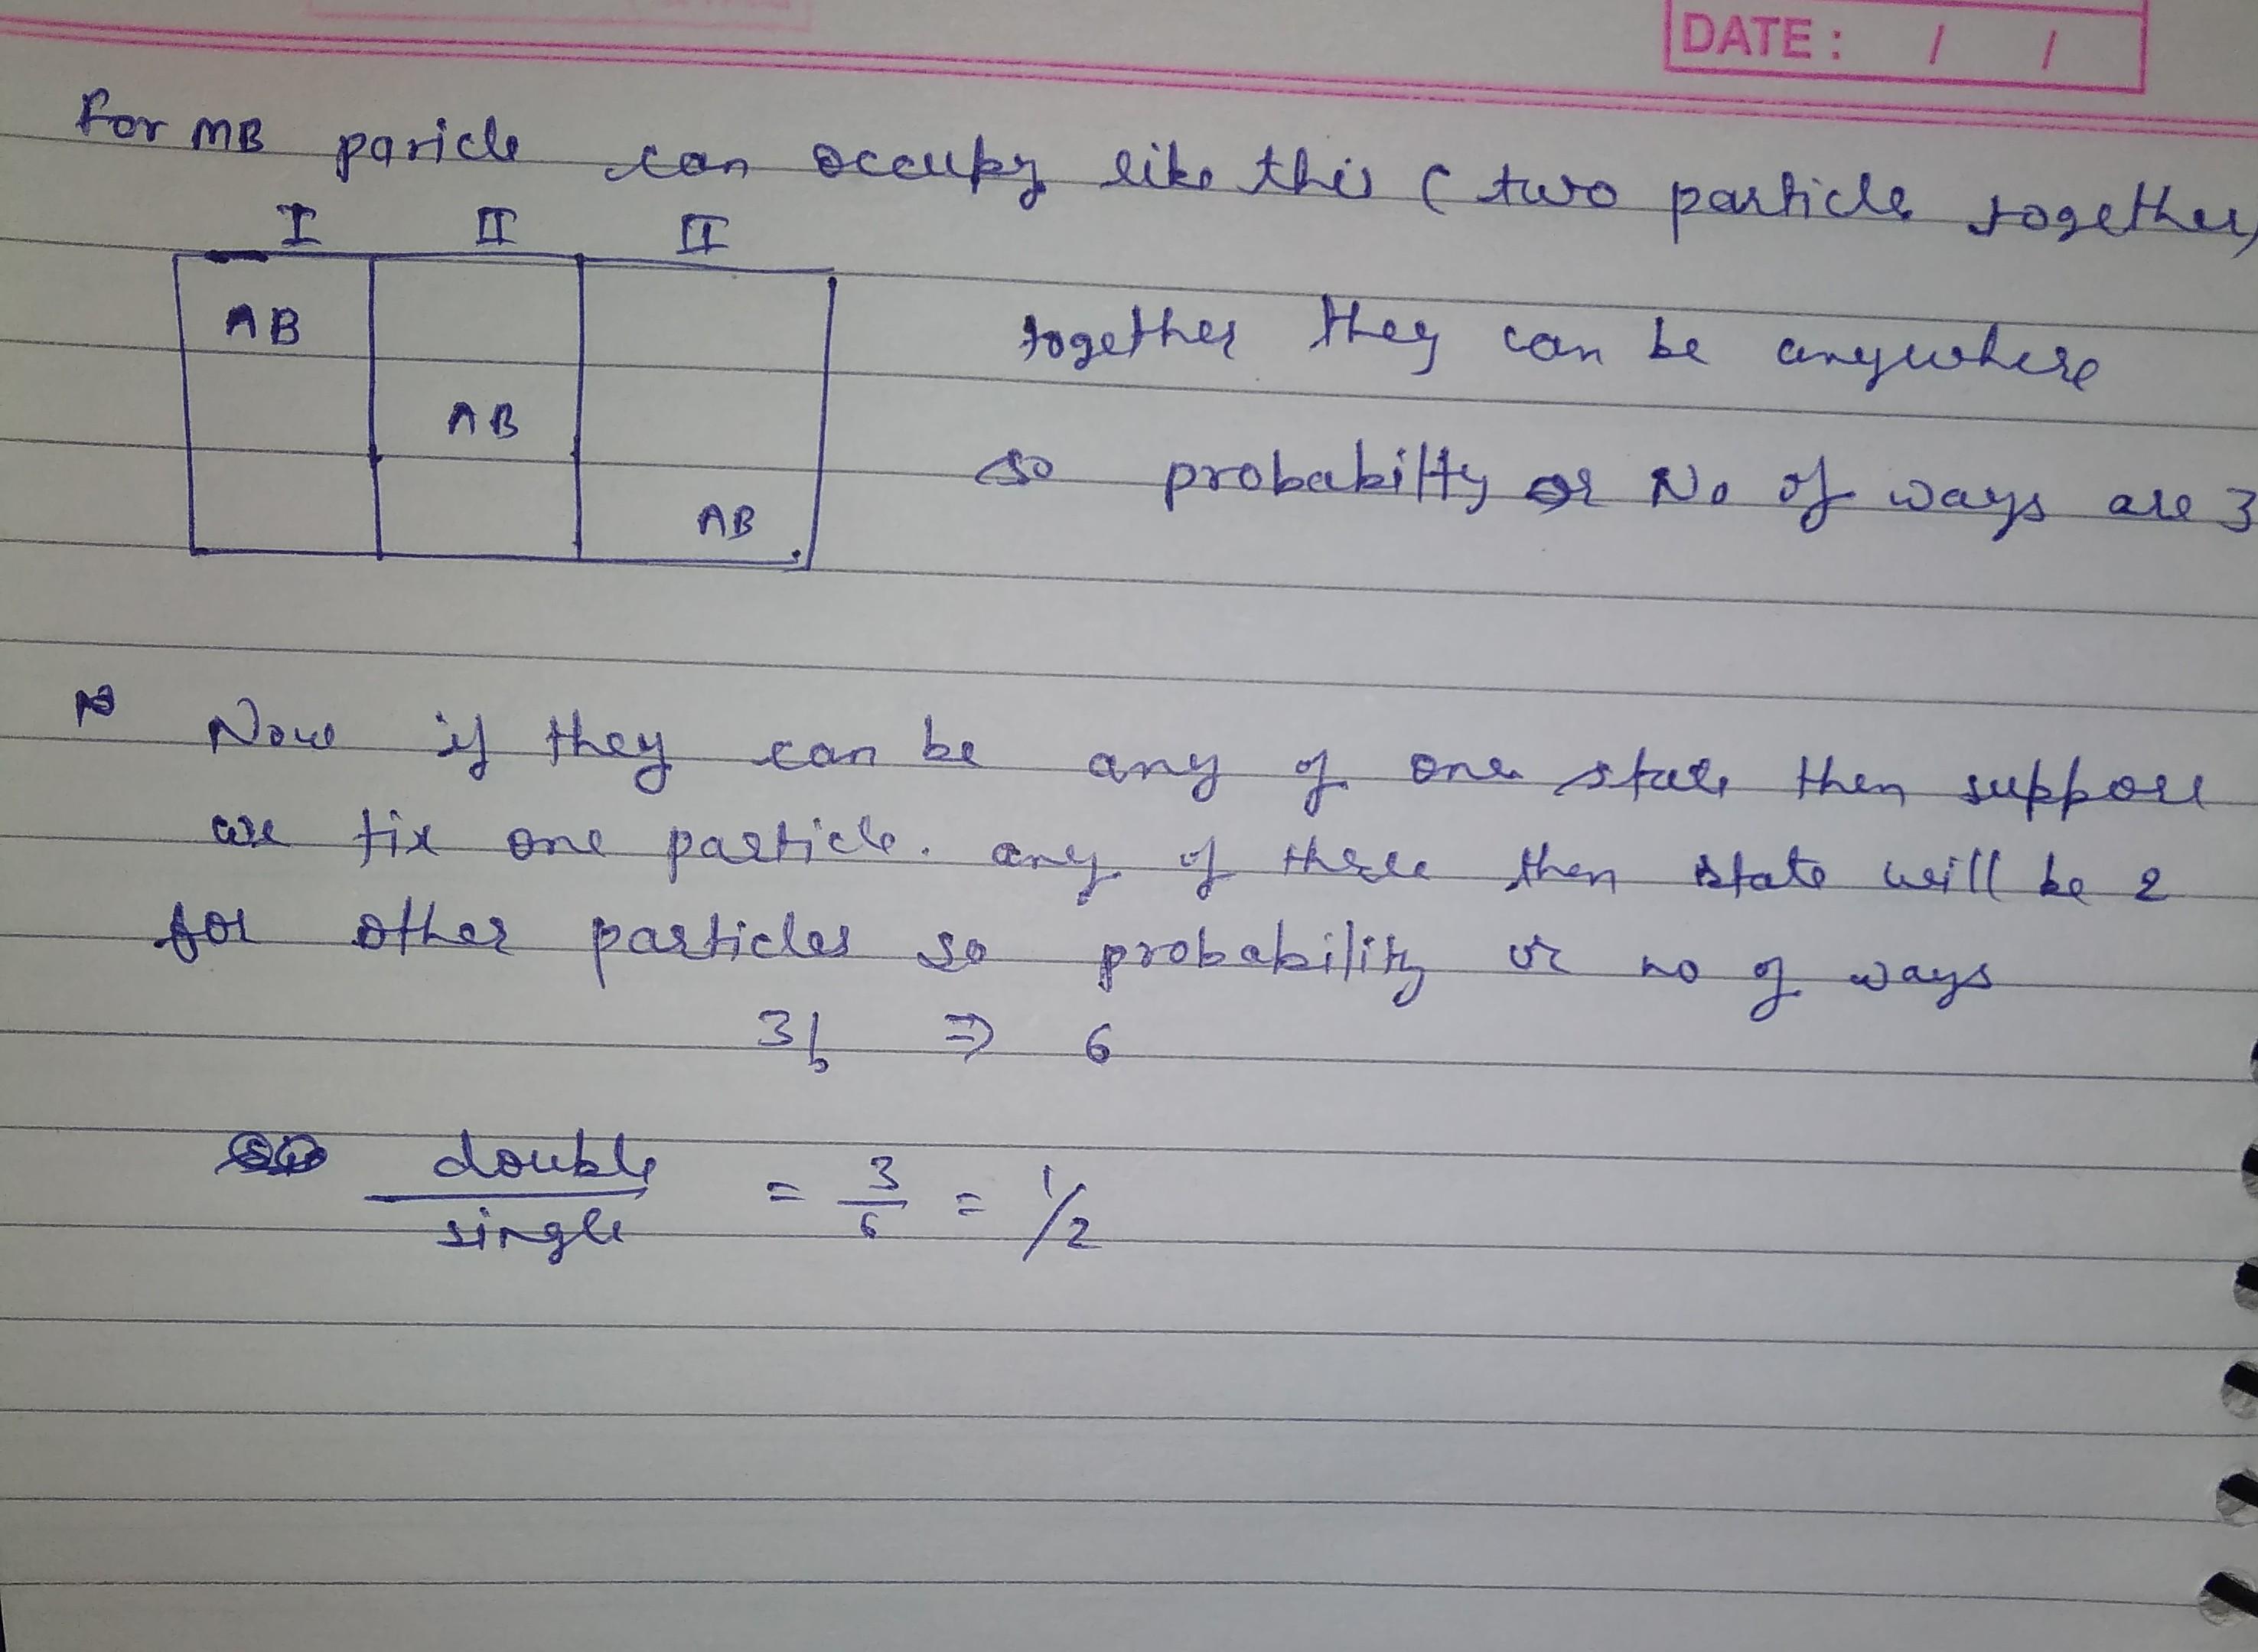 DATE : / /
for MB paricle can occupy like this ( two particle together)
I II II
AB
together they can be anywhere
AB
so probabiltty or No of ways are 3
AB
Now if they can be any of one state then suppose
we fix one particle. any of three then state will be 2
for other particles so probability or no of ways
3! ⇒ 6
double/single = 3/6 = 1/2